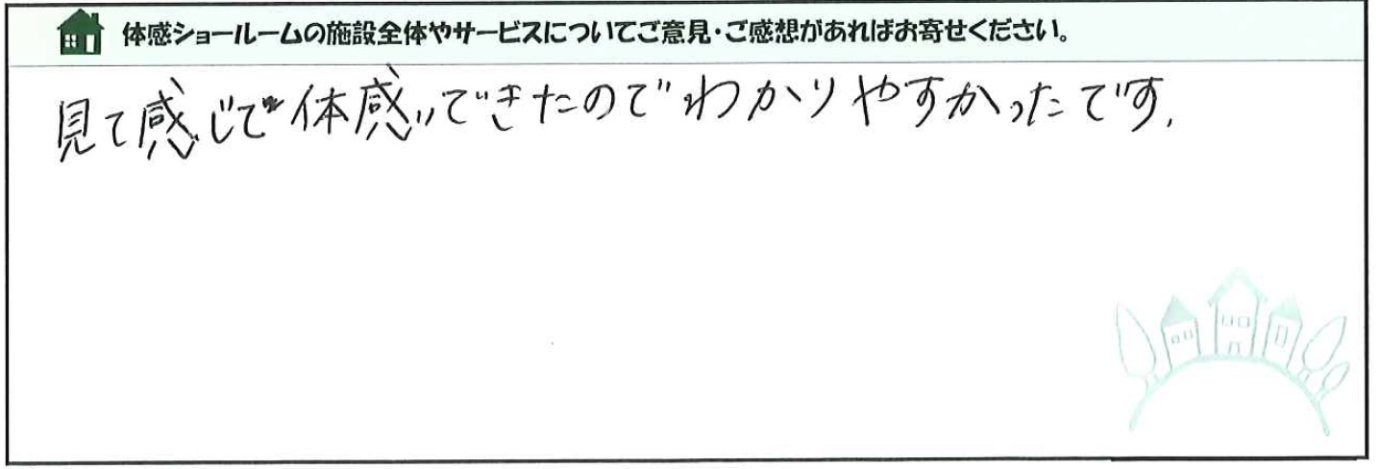 体感ショールームの施設全体やサービスについてご意見・ご感想があればお寄せください。
見て感じで体感できたのでわかりやすかったです.